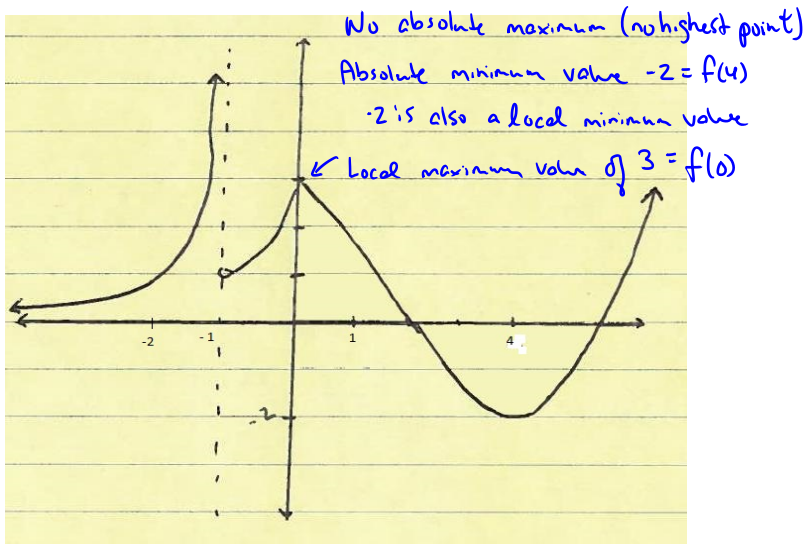 No absolute maximum (no highest point)
Absolute minimum value -2 = f(4)
-2 is also a local minimum value
Local maximum value of 3 = f(0)
-2
-1
1
4
-2